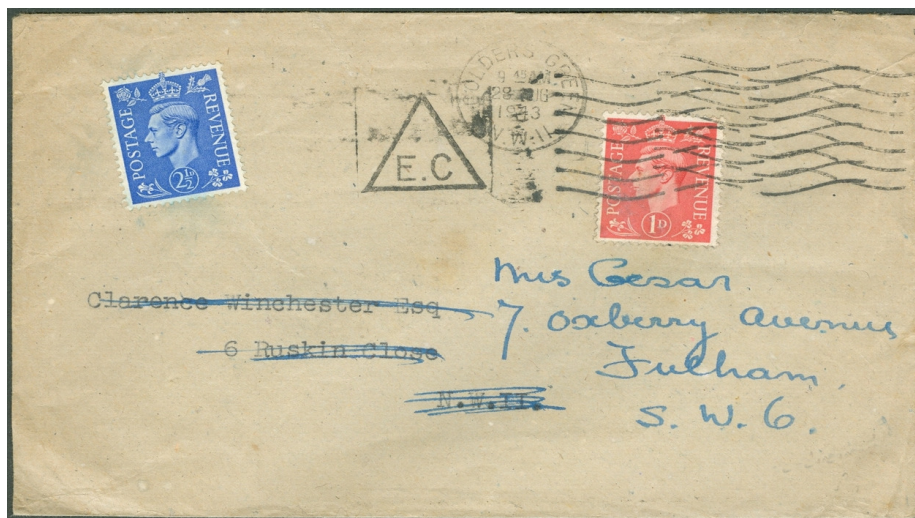 POSTAGE REVENUE
2½D
GOLDERS GREEN
9 15AM
28 AUG
1943
N.W.11
E.C
POSTAGE REVENUE
1D
Clarence Winchester Esq
6 Ruskin Close
N.W.11.
Mrs Cesar
7. Oxberry Avenue
Fulham.
S.W.6.